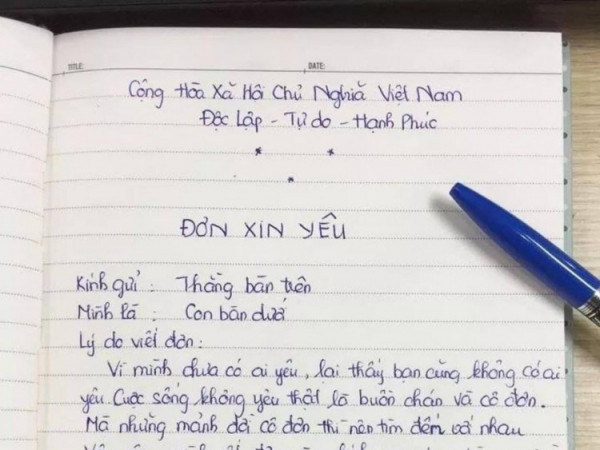 TITLE: DATE:
Cộng Hòa Xã Hội Chủ Nghĩa Việt Nam
Độc Lập - Tự do - Hạnh Phúc
* *
*
ĐƠN XIN YÊU
Kính gửi : Thằng bàn trên
Mình là : Con bàn dưới
Lý do viết đơn :
Vì mình chưa có ai yêu, lại thấy bạn cũng không có ai
yêu. Cuộc sống không yêu thật là buồn chán và cô đơn.
Mà những mảnh đời cô đơn thì nên tìm đến với nhau